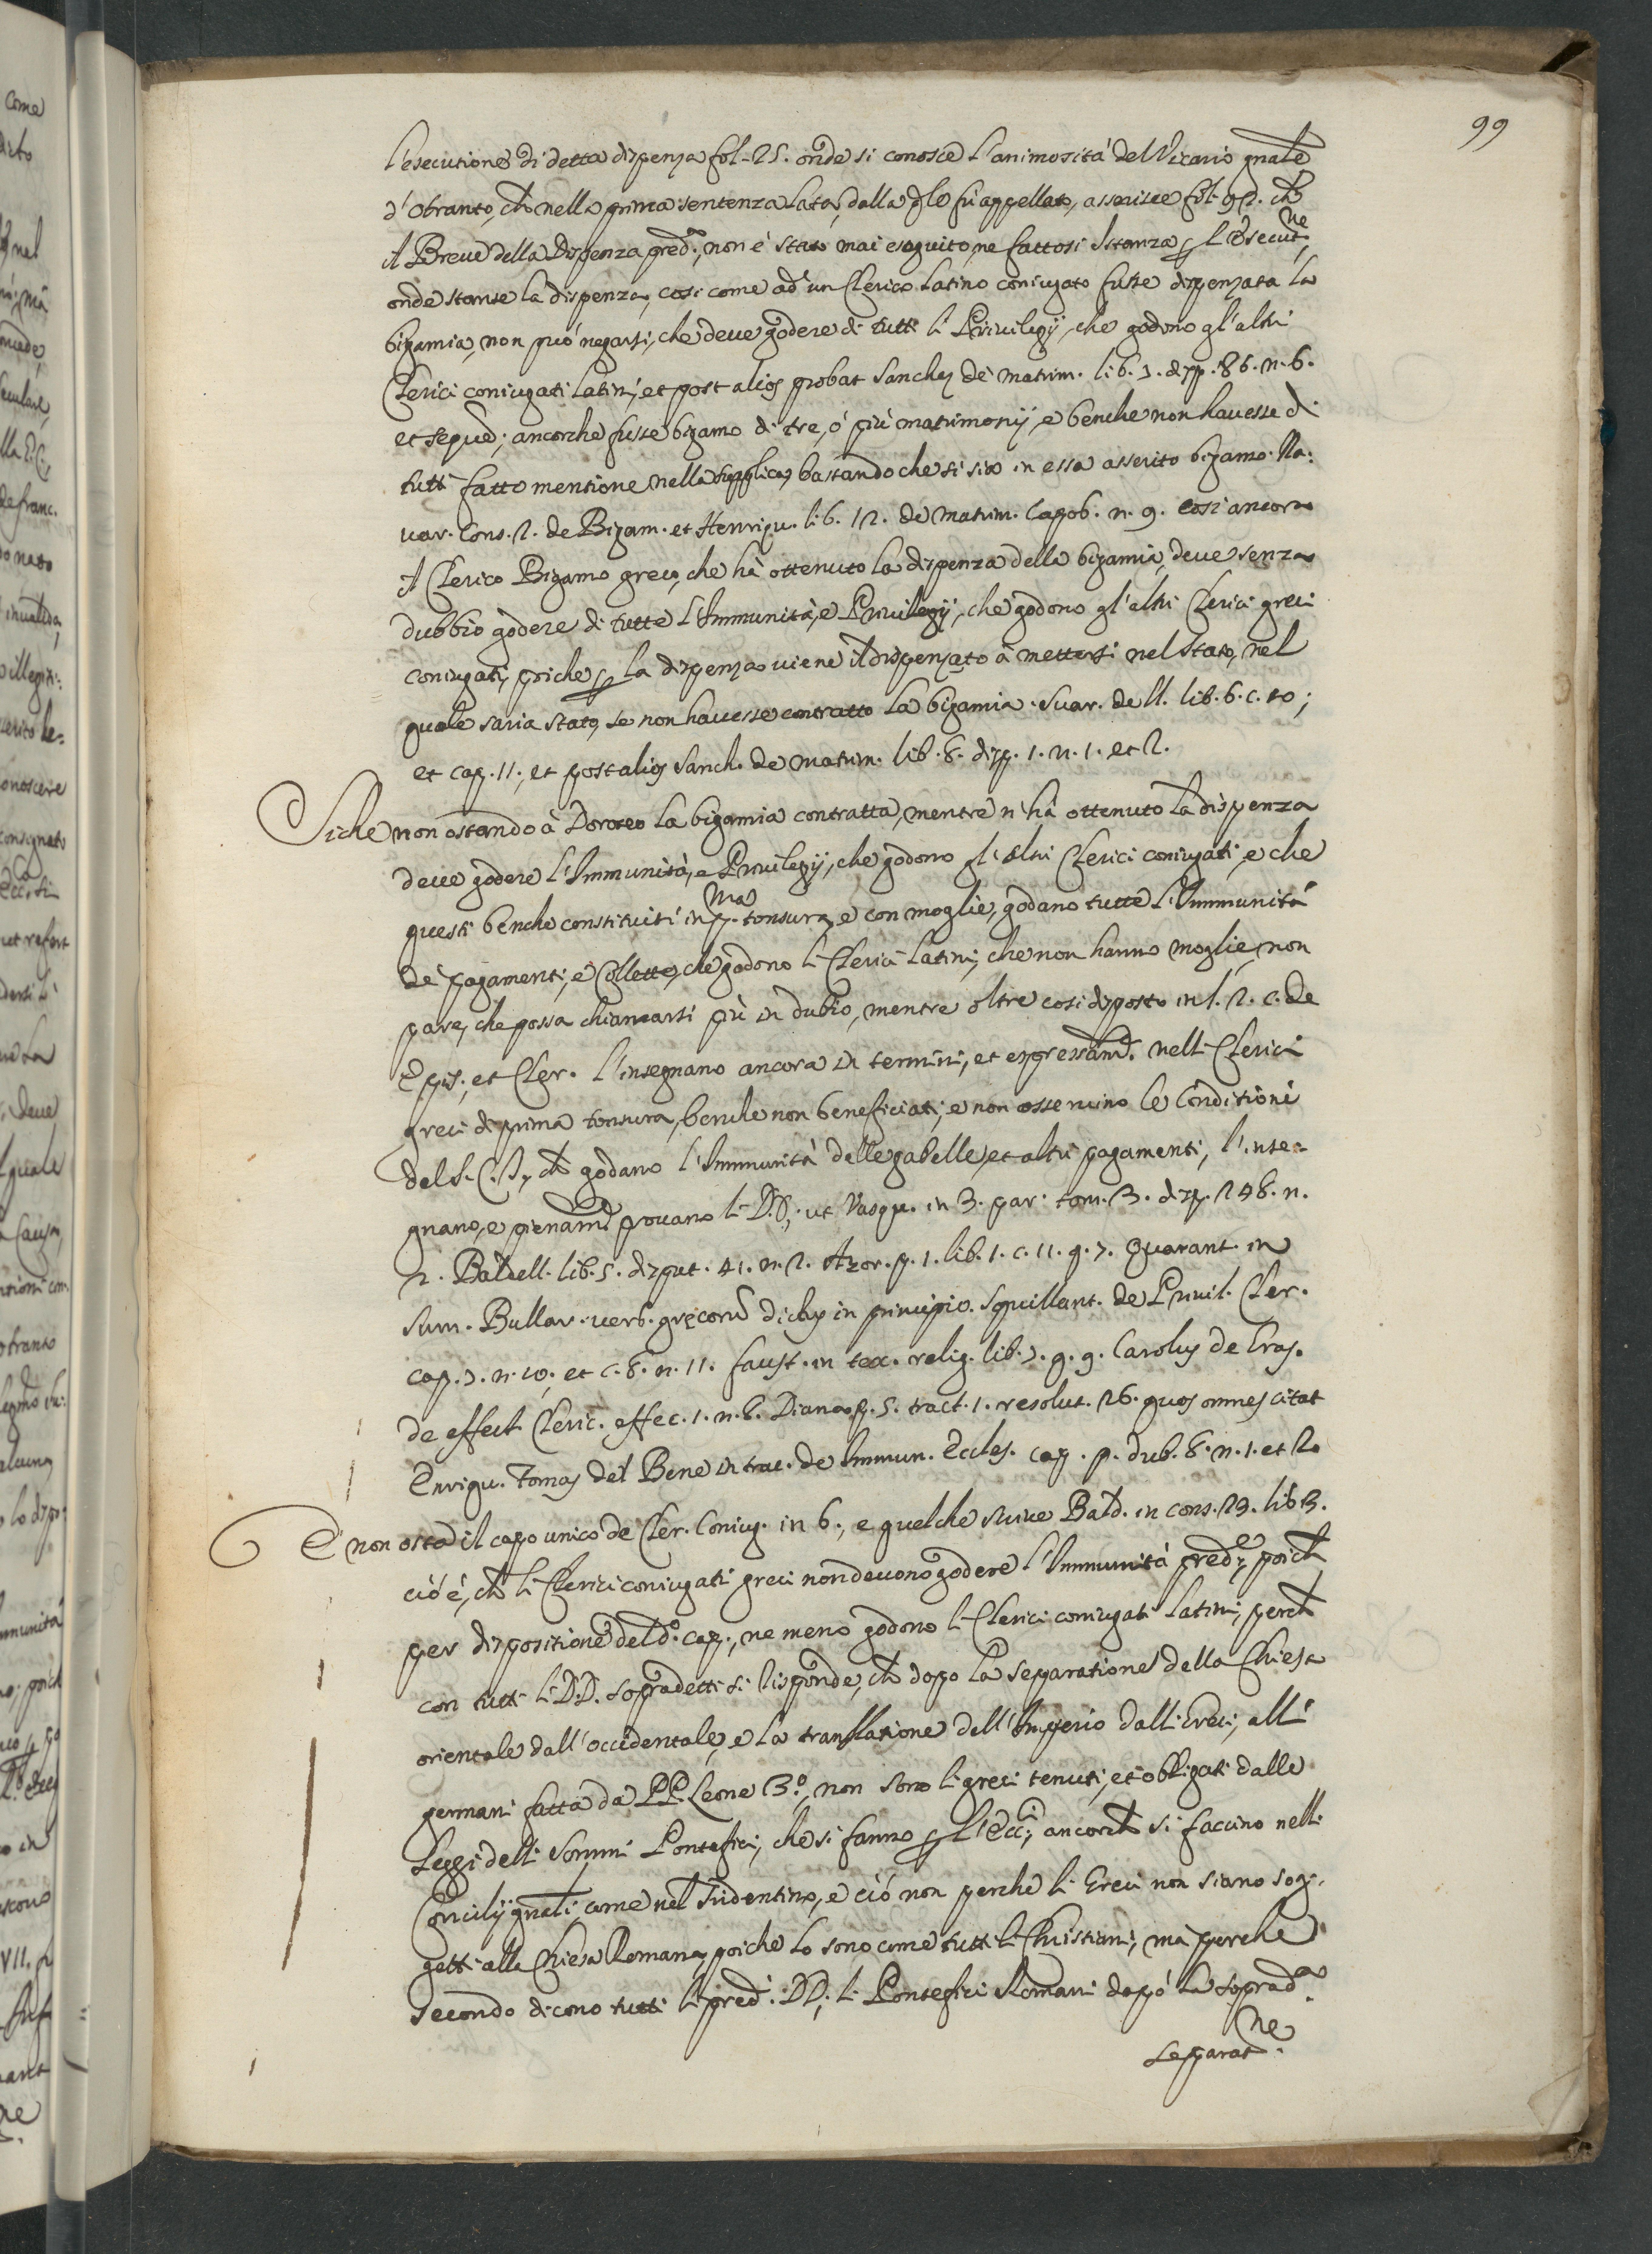 99
l'esecutione di detta dispensa fol. 25. onde si conosce l'animosità del Vicario gñale
d'Otranto, ch̃ nella prima sentenza lata, dalla q̃le fù appellato, asserisce fol. 92. ch̃
il Breve della Dispenza pred.ª, non è stato mai eseguito, ne fattosi Istanza p̱ l'esecut.ne,
onde stante la dispenza, cosi come ad un Clerico latino coniugato fusse dispenzata la
bigamia, non può negarsi, che deve godere di tutti li Privilegij, che godono gl'altri
Clerici coniugati latini, et post alios probat Sanchez de matrim. lib. 7. disp. 86. n. 6.
et sequed; ancorche fusse bigamo di tre, ò più matrimonij, e benche non havesse di
tutti fatto mentione nella supplica, bastando che si sia in essa asserito bigamo. Na:
var. Cons. 2. de Bigam. et Henriqu. lib. 12. de matrim. cap. 6. n. 9. cosi ancora
il Clerico Bigamo greco, che hà ottenuto la dispenza della bigamia, deve senza
dubbio godere di tutte l'Immunità, e Privilegij, che godono gl'altri Clerici greci
coniugati, poiche p̱ la dispenza viene il dispenzato à mettersi nel stato, nel
quale saria stato, se non havesse contratto la bigamia. Suar. de ll. lib. 6. c. 10;
et cap. 11., et post alios Sanch. de matrim. lib. 8. disp. 1. n. 1. et 2.
Siche non ostando à Doroteo la bigamia contratta, mentre n'hà ottenuto la dispenza
deve godere l'Immunità, e Privilegij, che godono gl'altri Clerici coniugati, e che
questi benche constituiti in p.ma tonsura, e con moglie, godano tutte l'Immunità
de pagamenti, e Collette, che godono li Clerici latini, che non hanno moglie, non
pare, che possa chiamarsi più in dubio, mentre oltre cosi disposto in l. 2. c. de
Epis. et Cler. l'insegnano ancora in termini, et espressam.te nelli Clerici
greci di prima tonsura, benche non beneficiati, e non osservino le Conditioni
del S. C. T., ch̃ godano l'Immunità delle gabelle, et altri pagamenti, l'inse-
gnano, e pienam.te provano li DD., ut Vasqu. in 3. par. tom. 3. disp. 248. n.
2. Baldell. lib. 5. disput. 41. n. 2. Azor. p. 1. lib. 1. c. 11. q. 7. Quarant. in
Sum. Bullar. verb. grecorũ dicbus in principio. Squillant. de Privil. Cler.
cap. 7. n. 10. et c. 8. n. 11. Faust. in tex. relig. lib. 7. q. 9. Carolus de Gras.
de effect. Cleric. effec. 1. n. 6. Diana p. 5. tract. 1. resolut. 26. quos omnes citat
Enriqu. Tomas del Bene in trac. de Immun. Eccles. cap. p. dub. 8. n. 1. et 2.
E non osta il capo unico de Cler. Coniug. in 6., e quelche scrive Bald. in cons. 23. lib 3.
cioè, ch̃ li Clerici coniugati greci non devono godere l'Immunità pred.e, poich̃
per dispositione del d.º cap., ne meno godono li Clerici coniugati latini, perch̃
con tutti li DD. sopradetti si risponde, ch̃ dopo la separatione della Chiesa
orientale dall'occidentale, e la translatione dell'Imperio dalli Greci, alli
germani fatta da PP. Leone 3.º, non sono li greci tenuti, et obligati dalle
leggi delli Sommi Pontefici, che si fanno p̱ l'Ecc.i, ancorch̃ si faccino nelli
Concilij gñali come nel Tridentino, e ciò non perche li Greci non siano sog-
getti alla Chiesa Romana, poiche lo sono come tutti li Christiani, mà perche
secondo dicono tutti li pred.i DD., li Pontefici Romani dopò la soprad.ª
separat.ne